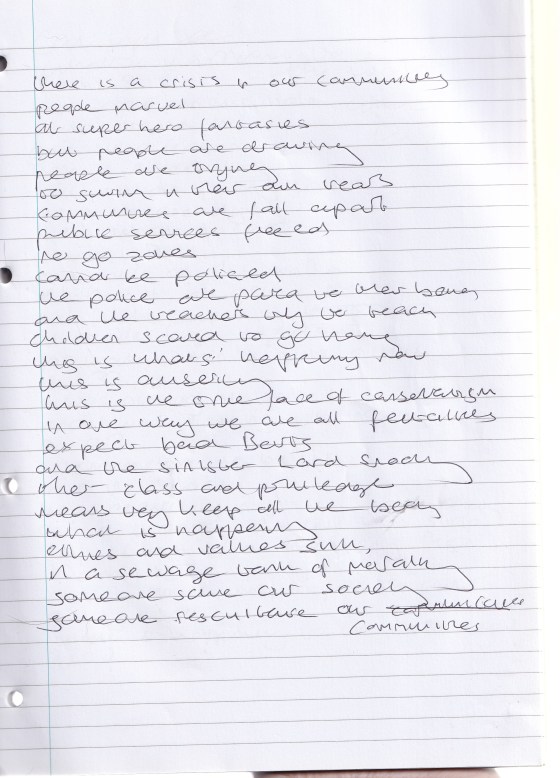 there is a crisis in our communities
people marvel
at super hero fantasies
but people are drowning
people are trying
to swim in their own tears
communities are fall apart
public services freeed
no go zones
cannot be policed
the police are paid to their being
and the teachers try to teach
children scared to go home
this is whats' happening now
this is austerity
this is the one face of conservatism
in one way we are all
expect bad Bents
and the sinister Lord Snooty
their class and priviledge
means they keep all the
what is happening
ethnics and values sunk,
in a sewage tank of morality
someone save our society
someone rescultate our communities
communities